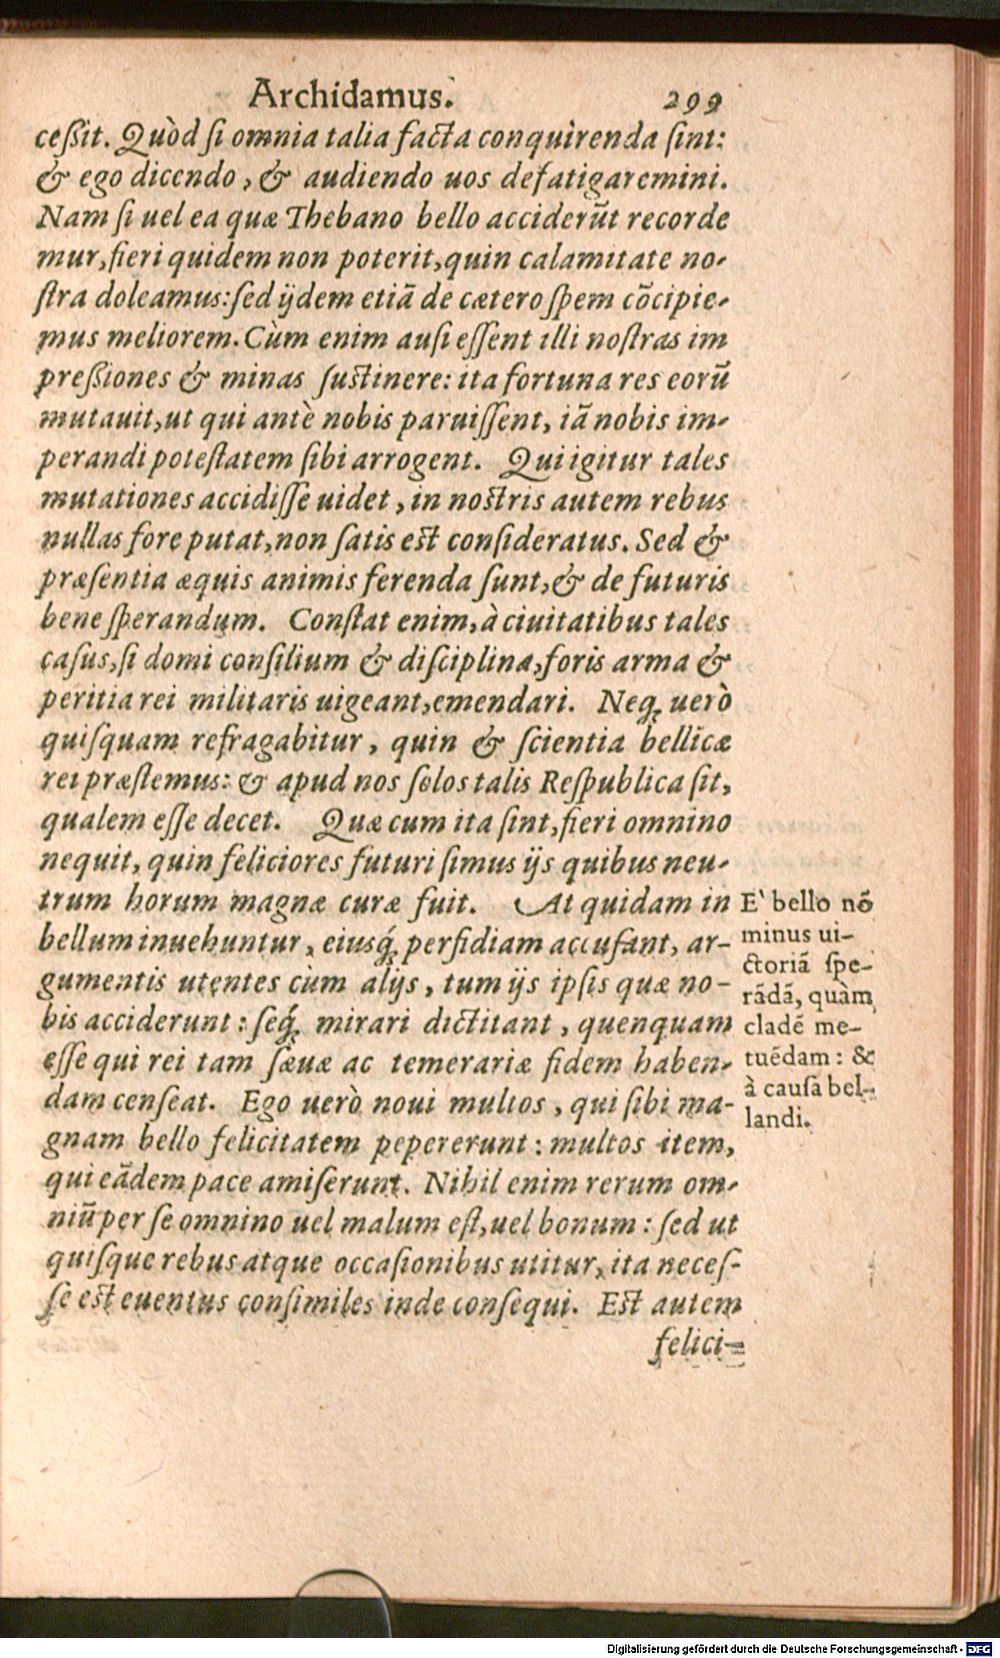 Archidamus. 299
ceßit. Quòd ſi omnia talia facta conquirenda ſint:
& ego dicendo, & audiendo uos defatigaremini.
Nam ſi uel ea quæ Thebano bello acciderūt recorde
mur, fieri quidem non poterit, quin calamitate no-
ſtra doleamus: ſed ijdem etiā de cætero ſpem cōcipie-
mus meliorem. Cùm enim auſi eſſent illi noſtras im
preßiones & minas ſuſtinere: ita fortuna res eorū
mutauit, ut qui antè nobis paruiſſent, iā nobis im-
perandi poteſtatem ſibi arrogent. Qui igitur tales
mutationes accidiſſe uidet, in noſtris autem rebus
nullas fore putat, non ſatis eſt conſideratus. Sed &
præſentia æquis animis ferenda ſunt, & de futuris
bene ſperandum. Conſtat enim, à ciuitatibus tales
caſus, ſi domi conſilium & diſciplina, foris arma &
peritia rei militaris uigeant, emendari. Neq; uerò
quiſquam refragabitur, quin & ſcientia bellicæ
rei præſtemus: & apud nos ſolos talis Reſpublica ſit,
qualem eſſe decet. Quæ cum ita ſint, fieri omnino
nequit, quin feliciores futuri ſimus ijs quibus neu-
trum horum magnæ curæ fuit. At quidam in
bellum inuehuntur, eiusq́; perfidiam accuſant, ar-
gumentis utentes cùm alijs, tum ijs ipſis quæ no-
bis acciderunt: ſeq́; mirari dictitant, quenquam
eſſe qui rei tam ſæuæ ac temerariæ fidem haben-
dam cenſeat. Ego uerò noui multos, qui ſibi ma-
gnam bello felicitatem pepererunt: multos item,
qui eādem pace amiſerunt. Nihil enim rerum om-
niū per ſe omnino uel malum eſt, uel bonum: ſed ut
quiſque rebus atque occaſionibus utitur, ita neceſ-
ſe eſt euentus conſimiles inde conſequi. Eſt autem
felici-
E' bello nō
minus ui-
ctoriā ſpe-
rādā, quàm
cladē me-
tuēdam: &
à cauſa bel-
landi.
Digitalisierung gefördert durch die Deutsche Forschungsgemeinschaft - DFG